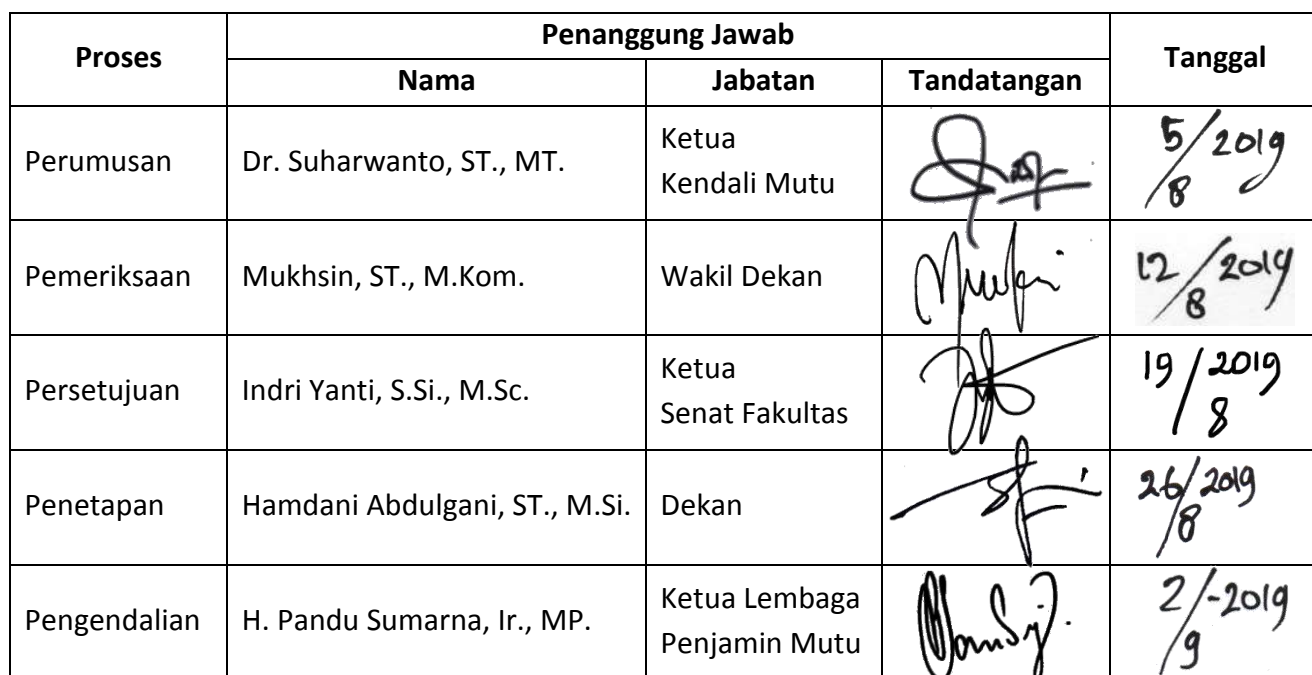 Proses Penanggung Jawab Tanggal
Nama Jabatan Tandatangan
Perumusan Dr. Suharwanto, ST., MT. Ketua
Kendali Mutu 5/8 2019
Pemeriksaan Mukhsin, ST., M.Kom. Wakil Dekan 12/8 2019
Persetujuan Indri Yanti, S.Si., M.Sc. Ketua
Senat Fakultas 19/8 2019
Penetapan Hamdani Abdulgani, ST., M.Si. Dekan 26/8 2019
Pengendalian H. Pandu Sumarna, Ir., MP. Ketua Lembaga
Penjamin Mutu 2/9-2019